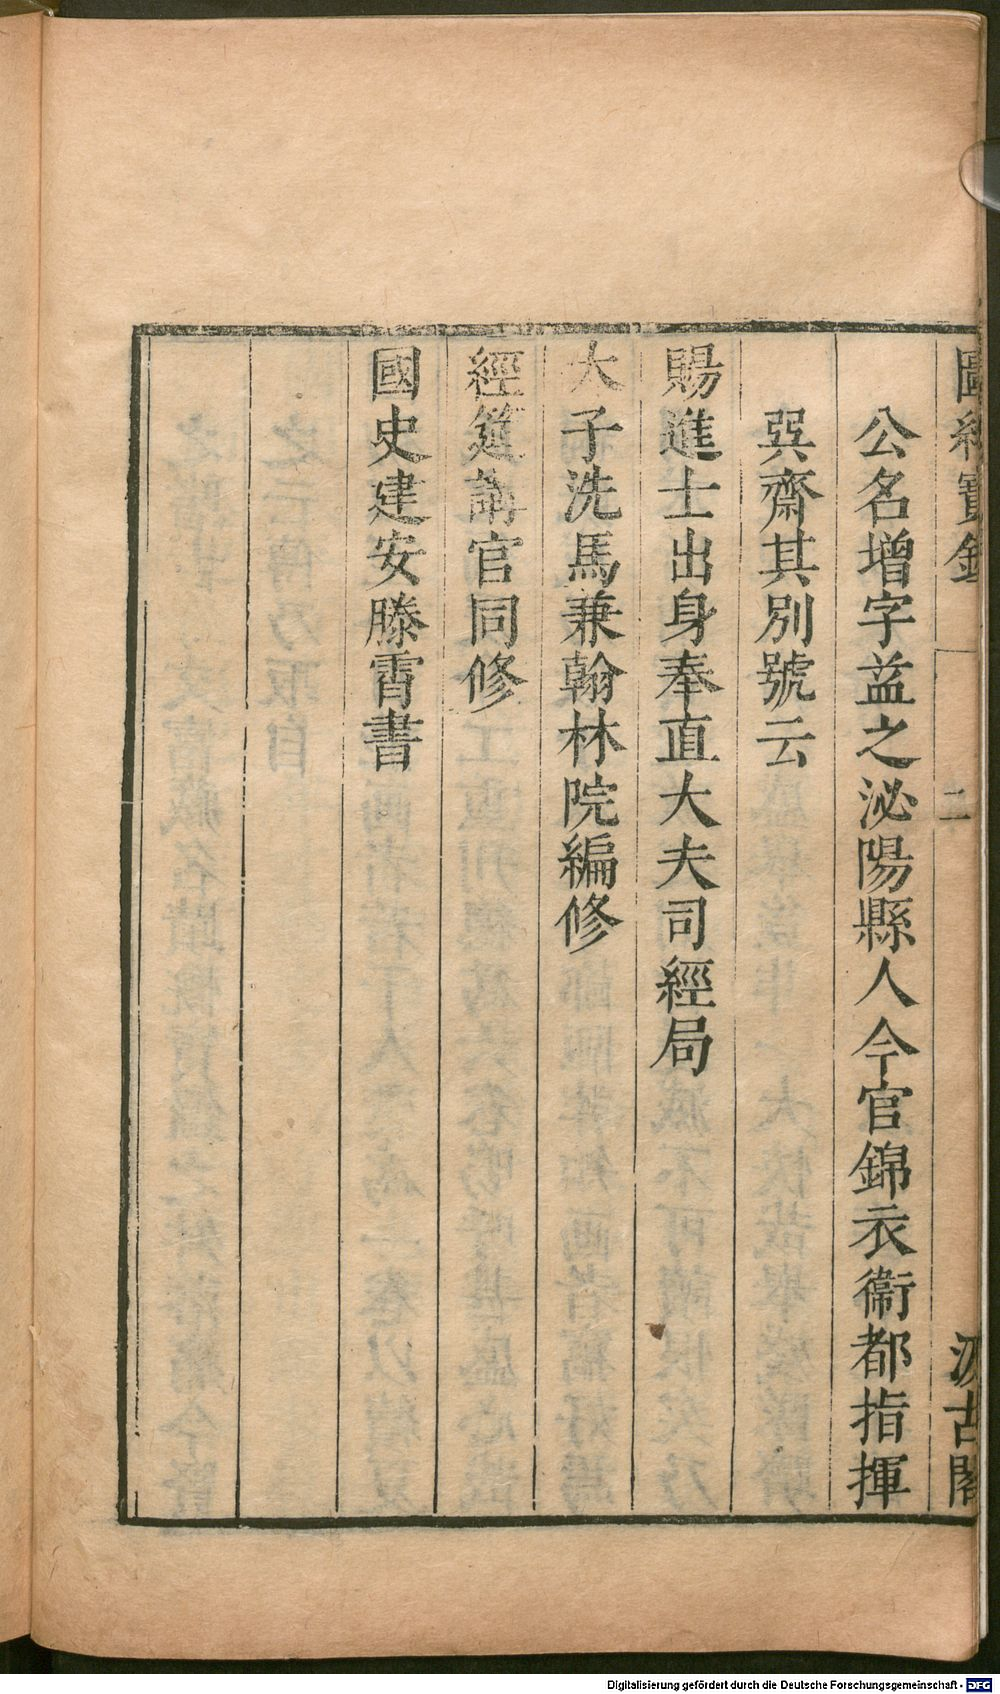 圖繪寶鑑
二
汲古閣
公名增字益之泌陽縣人今官錦衣衞都指揮
巽齋其別號云
賜進士出身奉直大夫司經局
大子洗馬兼翰林院編修
經筵講官同修
國史建安滕霄書
Digitalisierung gefördert durch die Deutsche Forschungsgemeinschaft - DFG